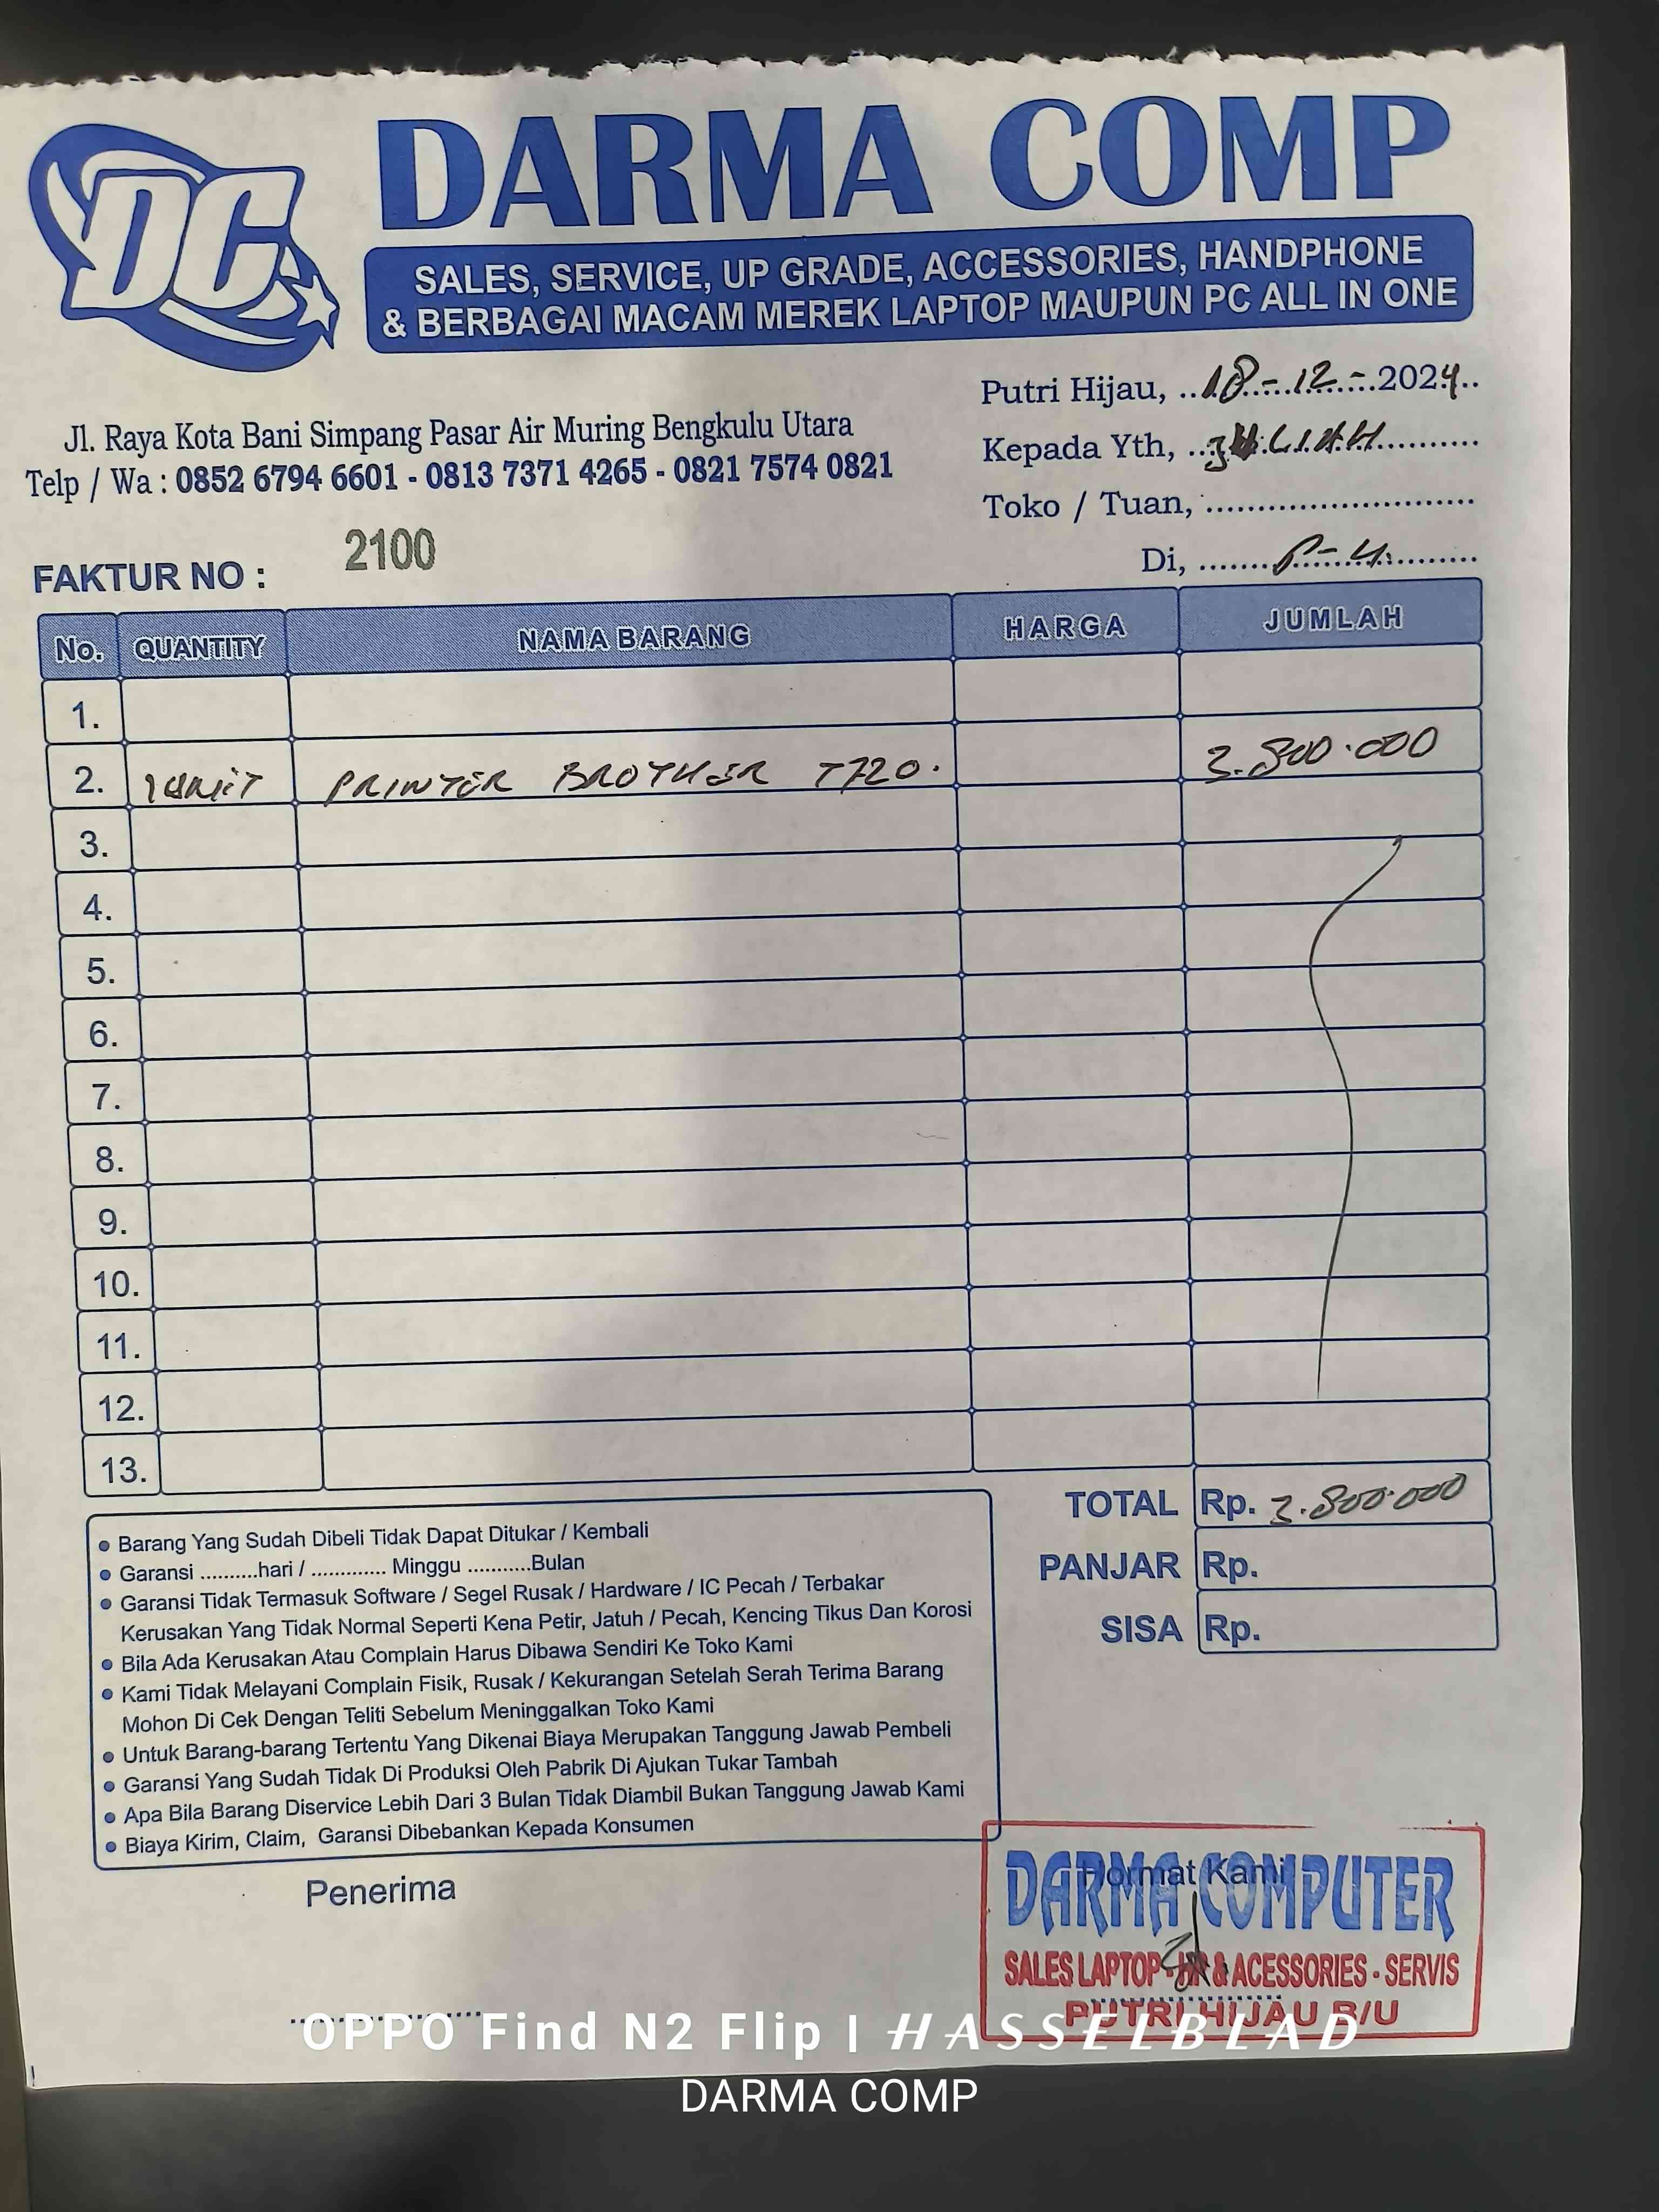 DC
DARMA COMP
SALES, SERVICE, UP GRADE, ACCESSORIES, HANDPHONE
& BERBAGAI MACAM MEREK LAPTOP MAUPUN PC ALL IN ONE
Jl. Raya Kota Bani Simpang Pasar Air Muring Bengkulu Utara
Telp / Wa : 0852 6794 6601 - 0813 7371 4265 - 0821 7574 0821
Putri Hijau, 18 - 12 - 2024
Kepada Yth,
Toko / Tuan,
Di, P-H
FAKTUR NO : 2100
No. QUANTITY NAMA BARANG HARGA JUMLAH
1.
2. 1 UNIT PRINTER BROTHER T720. 3.800.000
3.
4.
5.
6.
7.
8.
9.
10.
11.
12.
13.
TOTAL Rp. 3.800.000
PANJAR Rp.
SISA Rp.
• Barang Yang Sudah Dibeli Tidak Dapat Ditukar / Kembali
• Garansi ..........hari / ............. Minggu ...........Bulan
• Garansi Tidak Termasuk Software / Segel Rusak / Hardware / IC Pecah / Terbakar
Kerusakan Yang Tidak Normal Seperti Kena Petir, Jatuh / Pecah, Kencing Tikus Dan Korosi
• Bila Ada Kerusakan Atau Complain Harus Dibawa Sendiri Ke Toko Kami
• Kami Tidak Melayani Complain Fisik, Rusak / Kekurangan Setelah Serah Terima Barang
Mohon Di Cek Dengan Teliti Sebelum Meninggalkan Toko Kami
• Untuk Barang-barang Tertentu Yang Dikenai Biaya Merupakan Tanggung Jawab Pembeli
• Garansi Yang Sudah Tidak Di Produksi Oleh Pabrik Di Ajukan Tukar Tambah
• Apa Bila Barang Diservice Lebih Dari 3 Bulan Tidak Diambil Bukan Tanggung Jawab Kami
• Biaya Kirim, Claim, Garansi Dibebankan Kepada Konsumen
Penerima
Hormat Kami
DARMA COMPUTER
SALES LAPTOP - HP & ACESSORIES - SERVIS
PUTRI HIJAU B/U
OPPO Find N2 Flip | HASSELBLAD
DARMA COMP